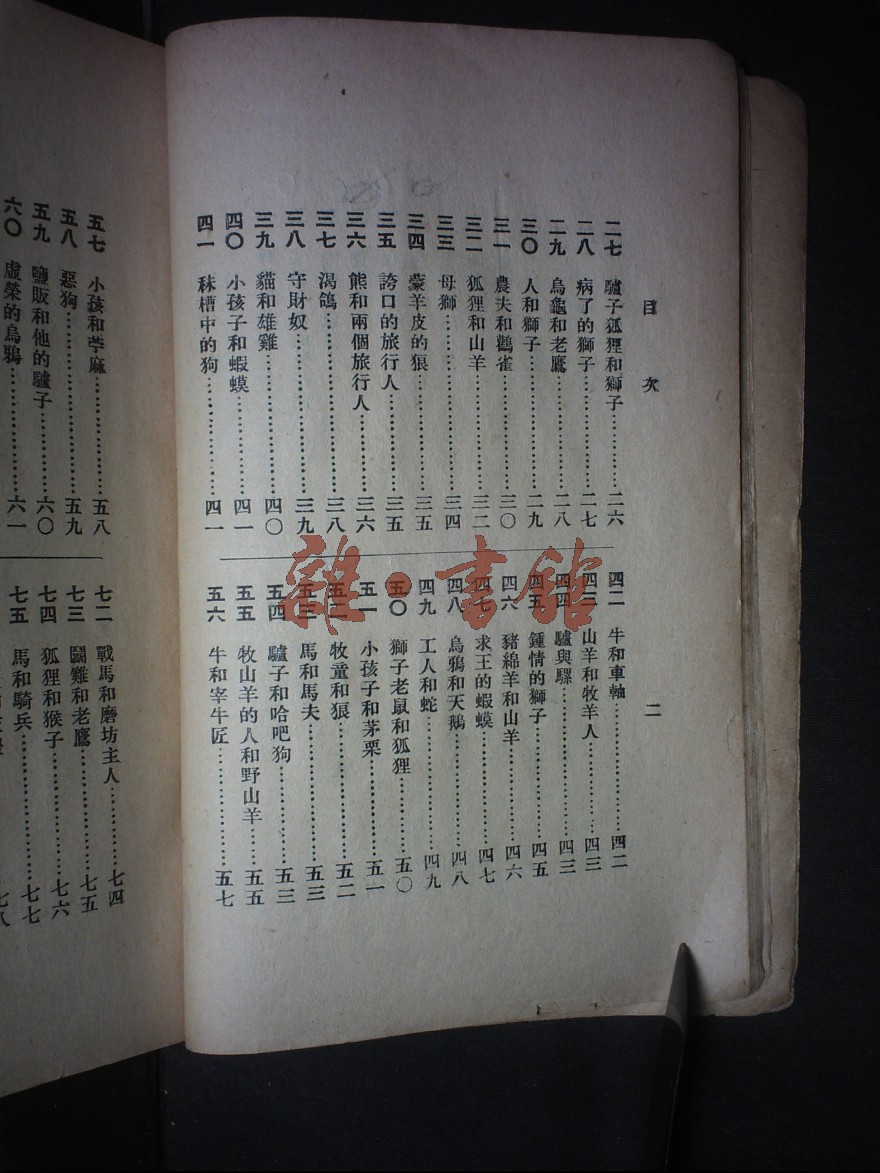 目次
二
二七 驢子狐狸和獅子………二六
二八 病了的獅子………二七
二九 烏龜和老鷹………二八
三〇 人和獅子………二九
三一 農夫和鸛雀………三〇
三二 狐狸和山羊………三二
三三 母獅………三四
三四 蒙羊皮的狼………三五
三五 誇口的旅行人………三五
三六 熊和兩個旅行人………三六
三七 渴鴿………三八
三八 守財奴………三九
三九 貓和雄雞………四〇
四〇 小孩子和蝦蟆………四一
四一 秣槽中的狗………四一
四二 牛和車軸………四二
四三 山羊和牧羊人………四三
四四 驢與騾………四三
四五 鍾情的獅子………四五
四六 豬綿羊和山羊………四六
四七 求王的蝦蟆………四七
四八 烏鴉和天鵝………四八
四九 工人和蛇………四九
五〇 獅子老鼠和狐狸………五〇
五一 小孩子和茅栗………五一
五二 牧童和狼………五二
五三 馬和馬夫………五三
五四 驢子和哈吧狗………五三
五五 牧山羊的人和野山羊………五五
五六 牛和宰牛匠………五七
五七 小孩和苧麻………五八
五八 惡狗………五九
五九 鹽販和他的驢子………六〇
六〇 虛榮的烏鴉………六一
七二 戰馬和磨坊主人………七四
七三 鬭雞和老鷹………七五
七四 狐狸和猴子………七六
七五 馬和騎兵………七七
七八
雜·書館